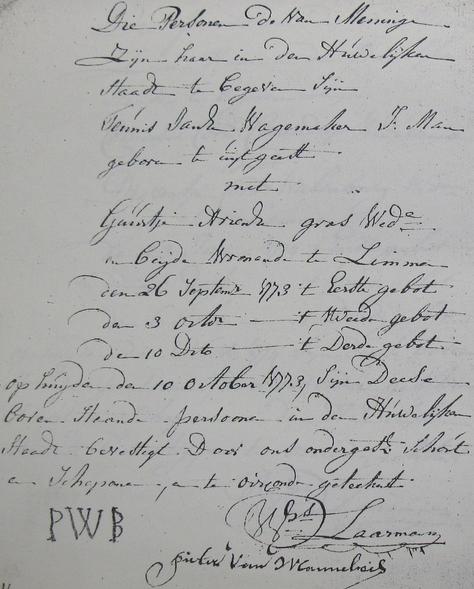 Die Persoonen de van Meeninge
Zijn haar in den Húwelijken
Staadt te begeven Sijn
Teúnis Jansz Wagemaker J: Man
geboren te úijtgeest
met
Gúúrtje Ariens gras Wed:e
en beijde Woonende te Limmen
den 26 Septemr 1773 't Eerste gebot
den 3 octobr 't tweede gebot
de 10 Dito 't Derde gebot
op húijden den 10 october 1773, Sijn Deese
boven Staande persoonen in den Húwelijken
Staadt bevestigt Door ons ondergeth: Schoút
en Schepenen, en te oirconde geteekent
PWB
Laarman
pieter van